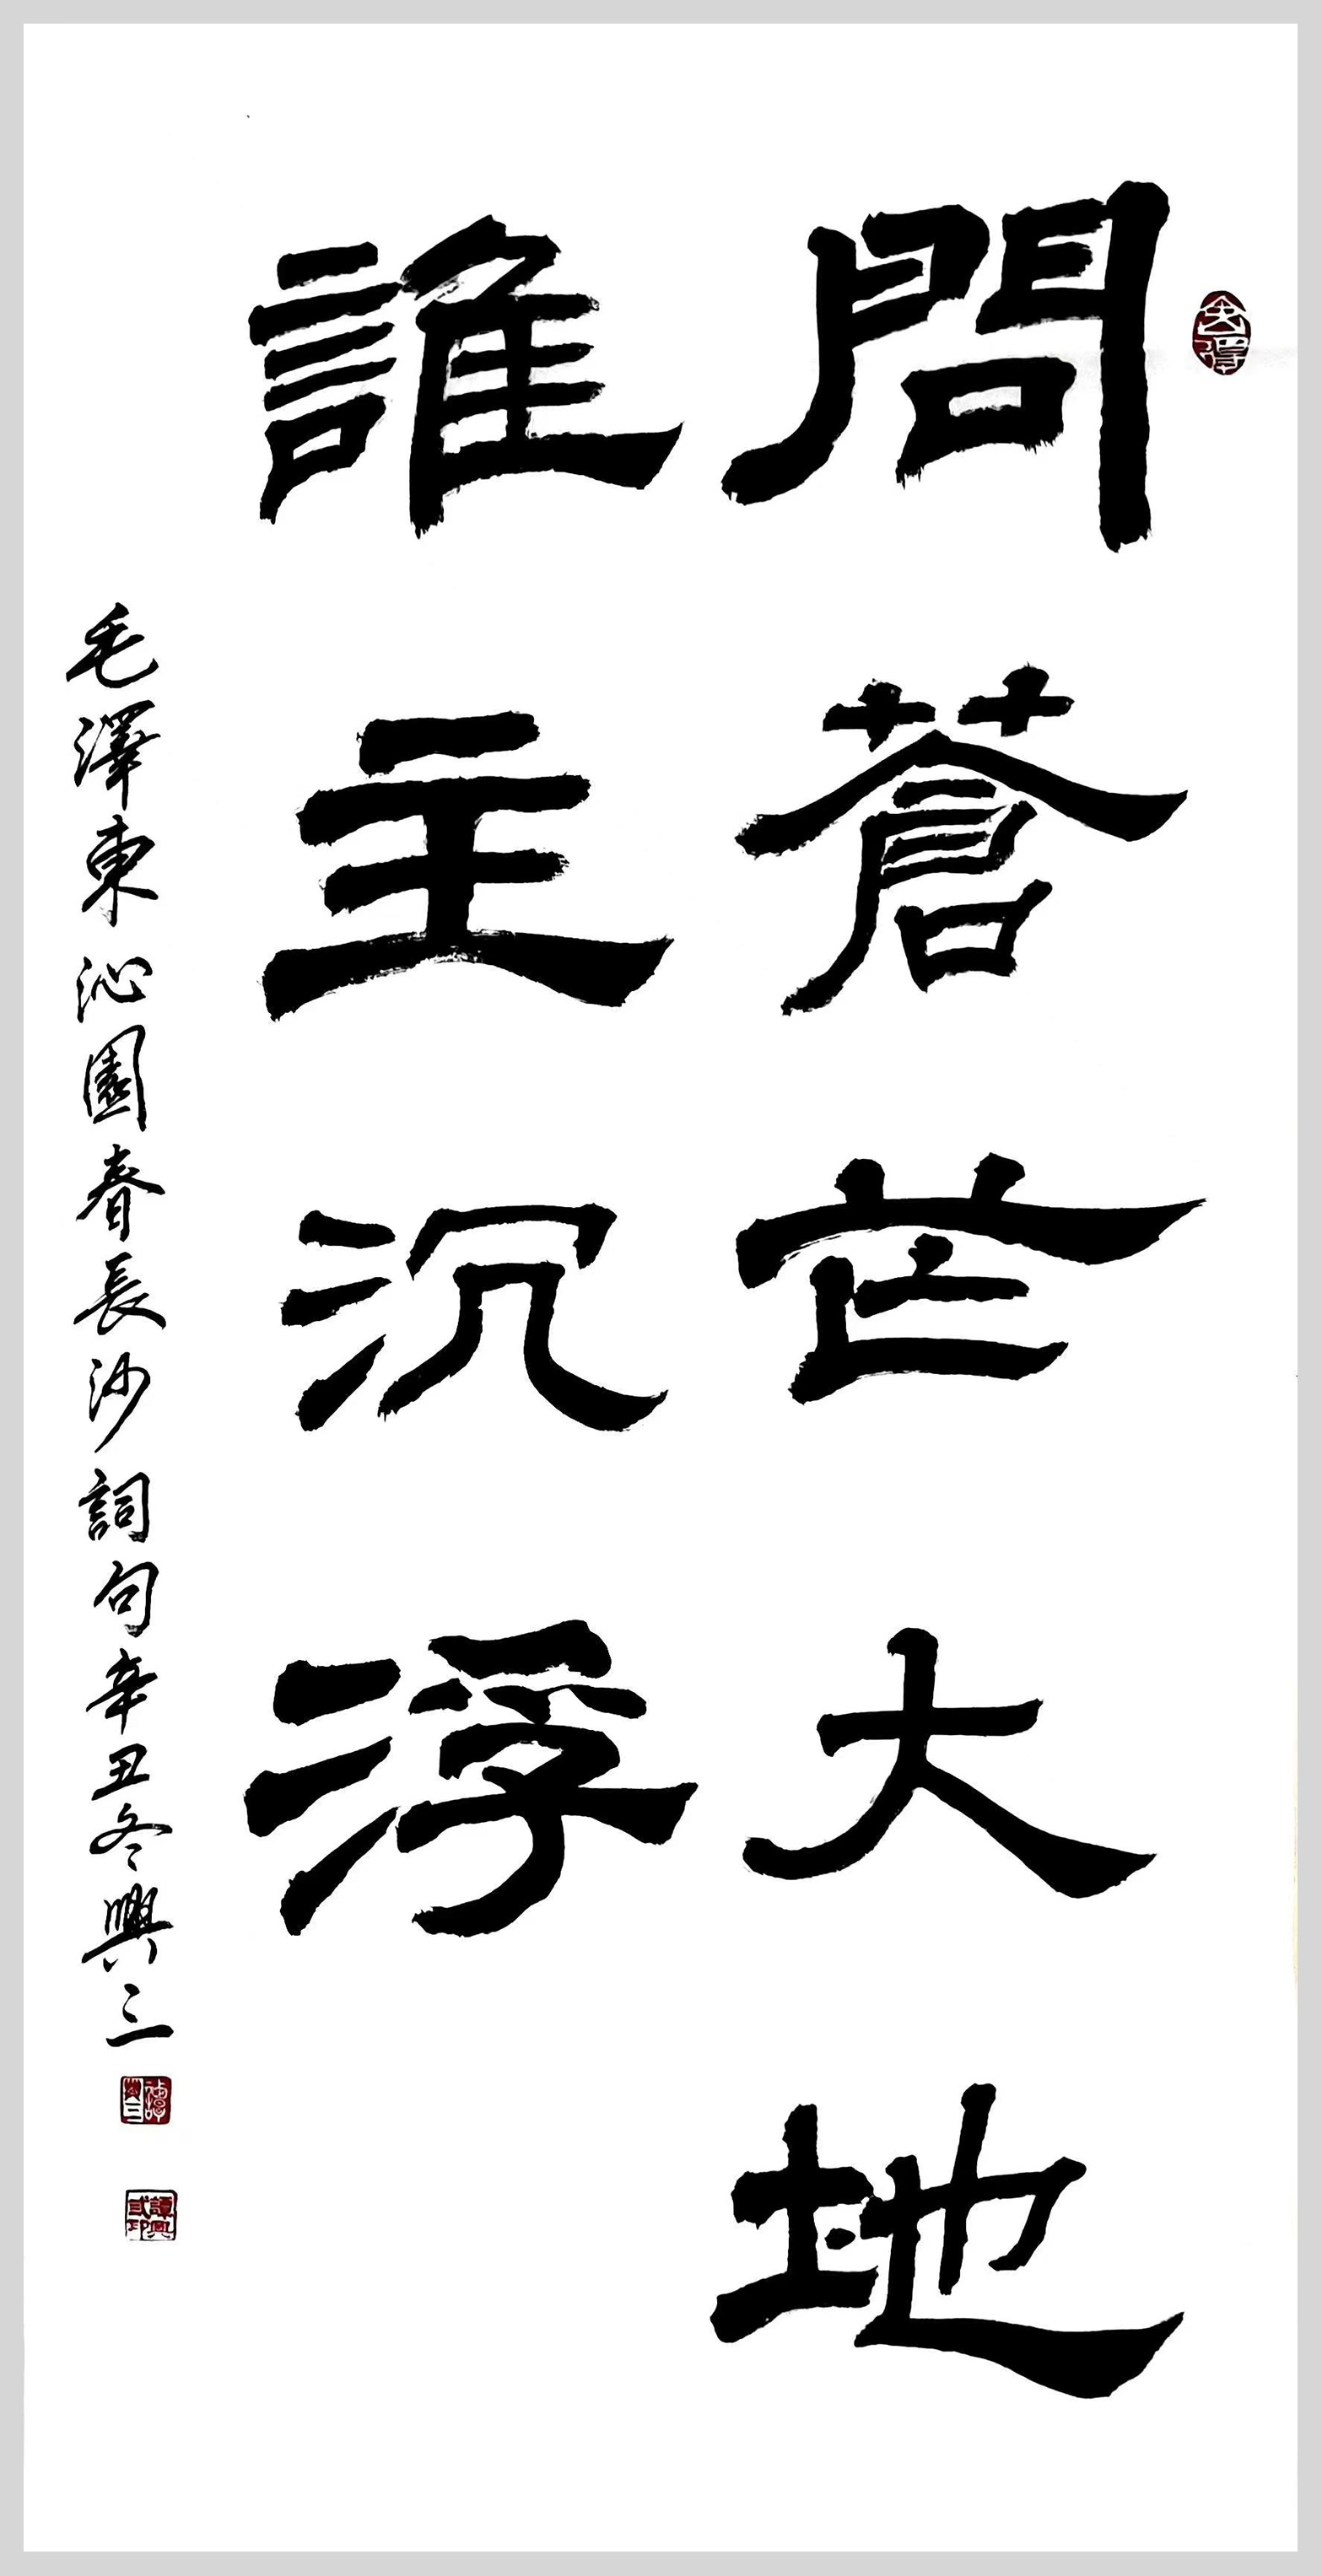 問蒼芒大地
誰主沉浮
毛澤東沁園春長沙詞句辛丑冬興三